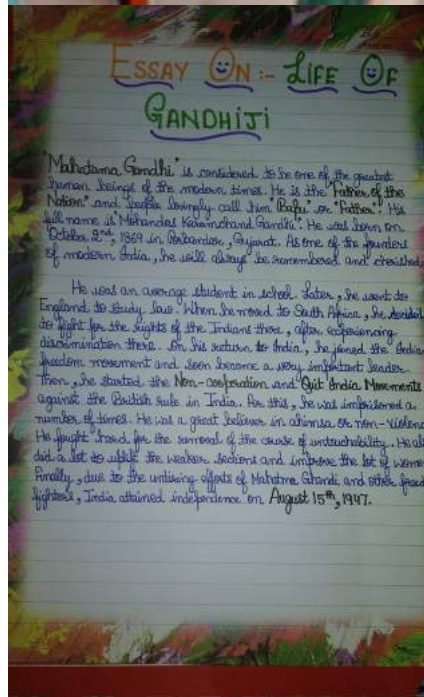 ESSAY ON :- LIFE OF
GANDHIJI
"Mahatama Gandhi" is considered to be one of the greatest
human beings of the modern times. He is the "Father of the
Nation" and people lovingly call him "Bapu" or "Father". His
full name is "Mohandas Karamchand Gandhi". He was born on
October 2nd, 1869 in Porbandar, Gujarat. As one of the founders
of modern India, he will always be remembered and cherished.
He was an average student in school. Later, he went to
England to study law. When he moved to South Africa, he decided
to fight for the rights of the Indians there, after experiencing
discrimination there. On his return to India, he joined the Indian
freedom movement and soon became a very important leader.
Then, he started the Non-cooperation and Quit India Movements
against the British rule in India. For this, he was imprisoned a
number of times. He was a great believer in ahimsa or non-violenc
He fought hard for the removal of the curse of untouchability. He als
did a lot to uplift the weaker sections and improve the lot of women
Finally, due to the untiring efforts of Mahatma Ghandi and other freed
fighters, India attained independence on August 15th, 1947.